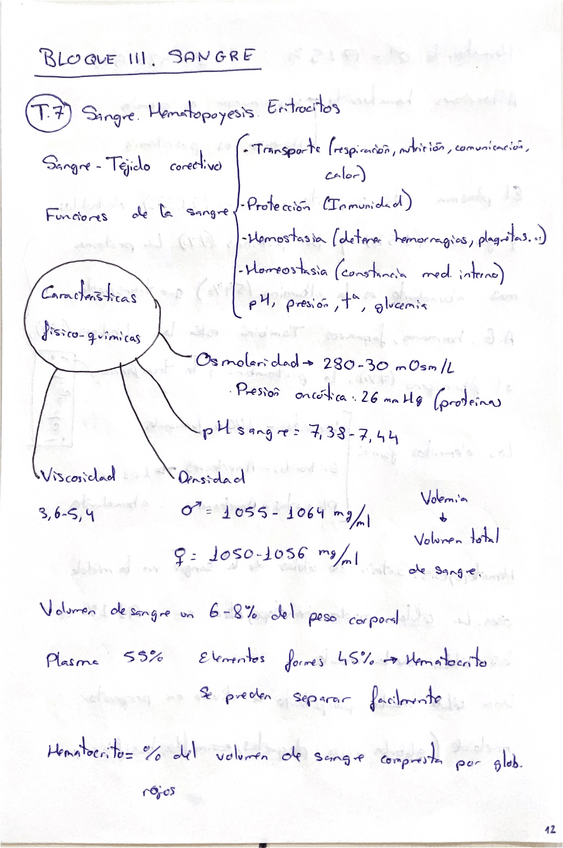 BLOQUE III. SANGRE
T.7 Sangre. Hematopoyesis. Eritrocitos
Sangre - Tejido conectivo
Funciones de la sangre
- Transporte (respiración, nutrición, comunicación,
calor)
- Protección (Inmunidad)
- Hemostasia (detener hemorragias, plaquetas...)
- Homeostasia (constancia med. interno)
pH, presión, tª, glucemia
Características
físico-químicas
Osmolaridad → 280-30 mOsm/L
· Presión oncótica: 26 mmHg (proteínas)
pH sangre = 7,38-7,44
Viscosidad
3,6-5,4
Densidad
♂ = 1055 - 1064 mg/ml
♀ = 1050-1056 mg/ml
Volemia
↓
Volumen total
de sangre.
Volumen de sangre un 6-8% del peso corporal
Plasma 55% Elementos formes 45% → Hematocrito
Se pueden separar facilmente
Hematocrito = % del volumen de sangre compuesta por glob.
rojos
12